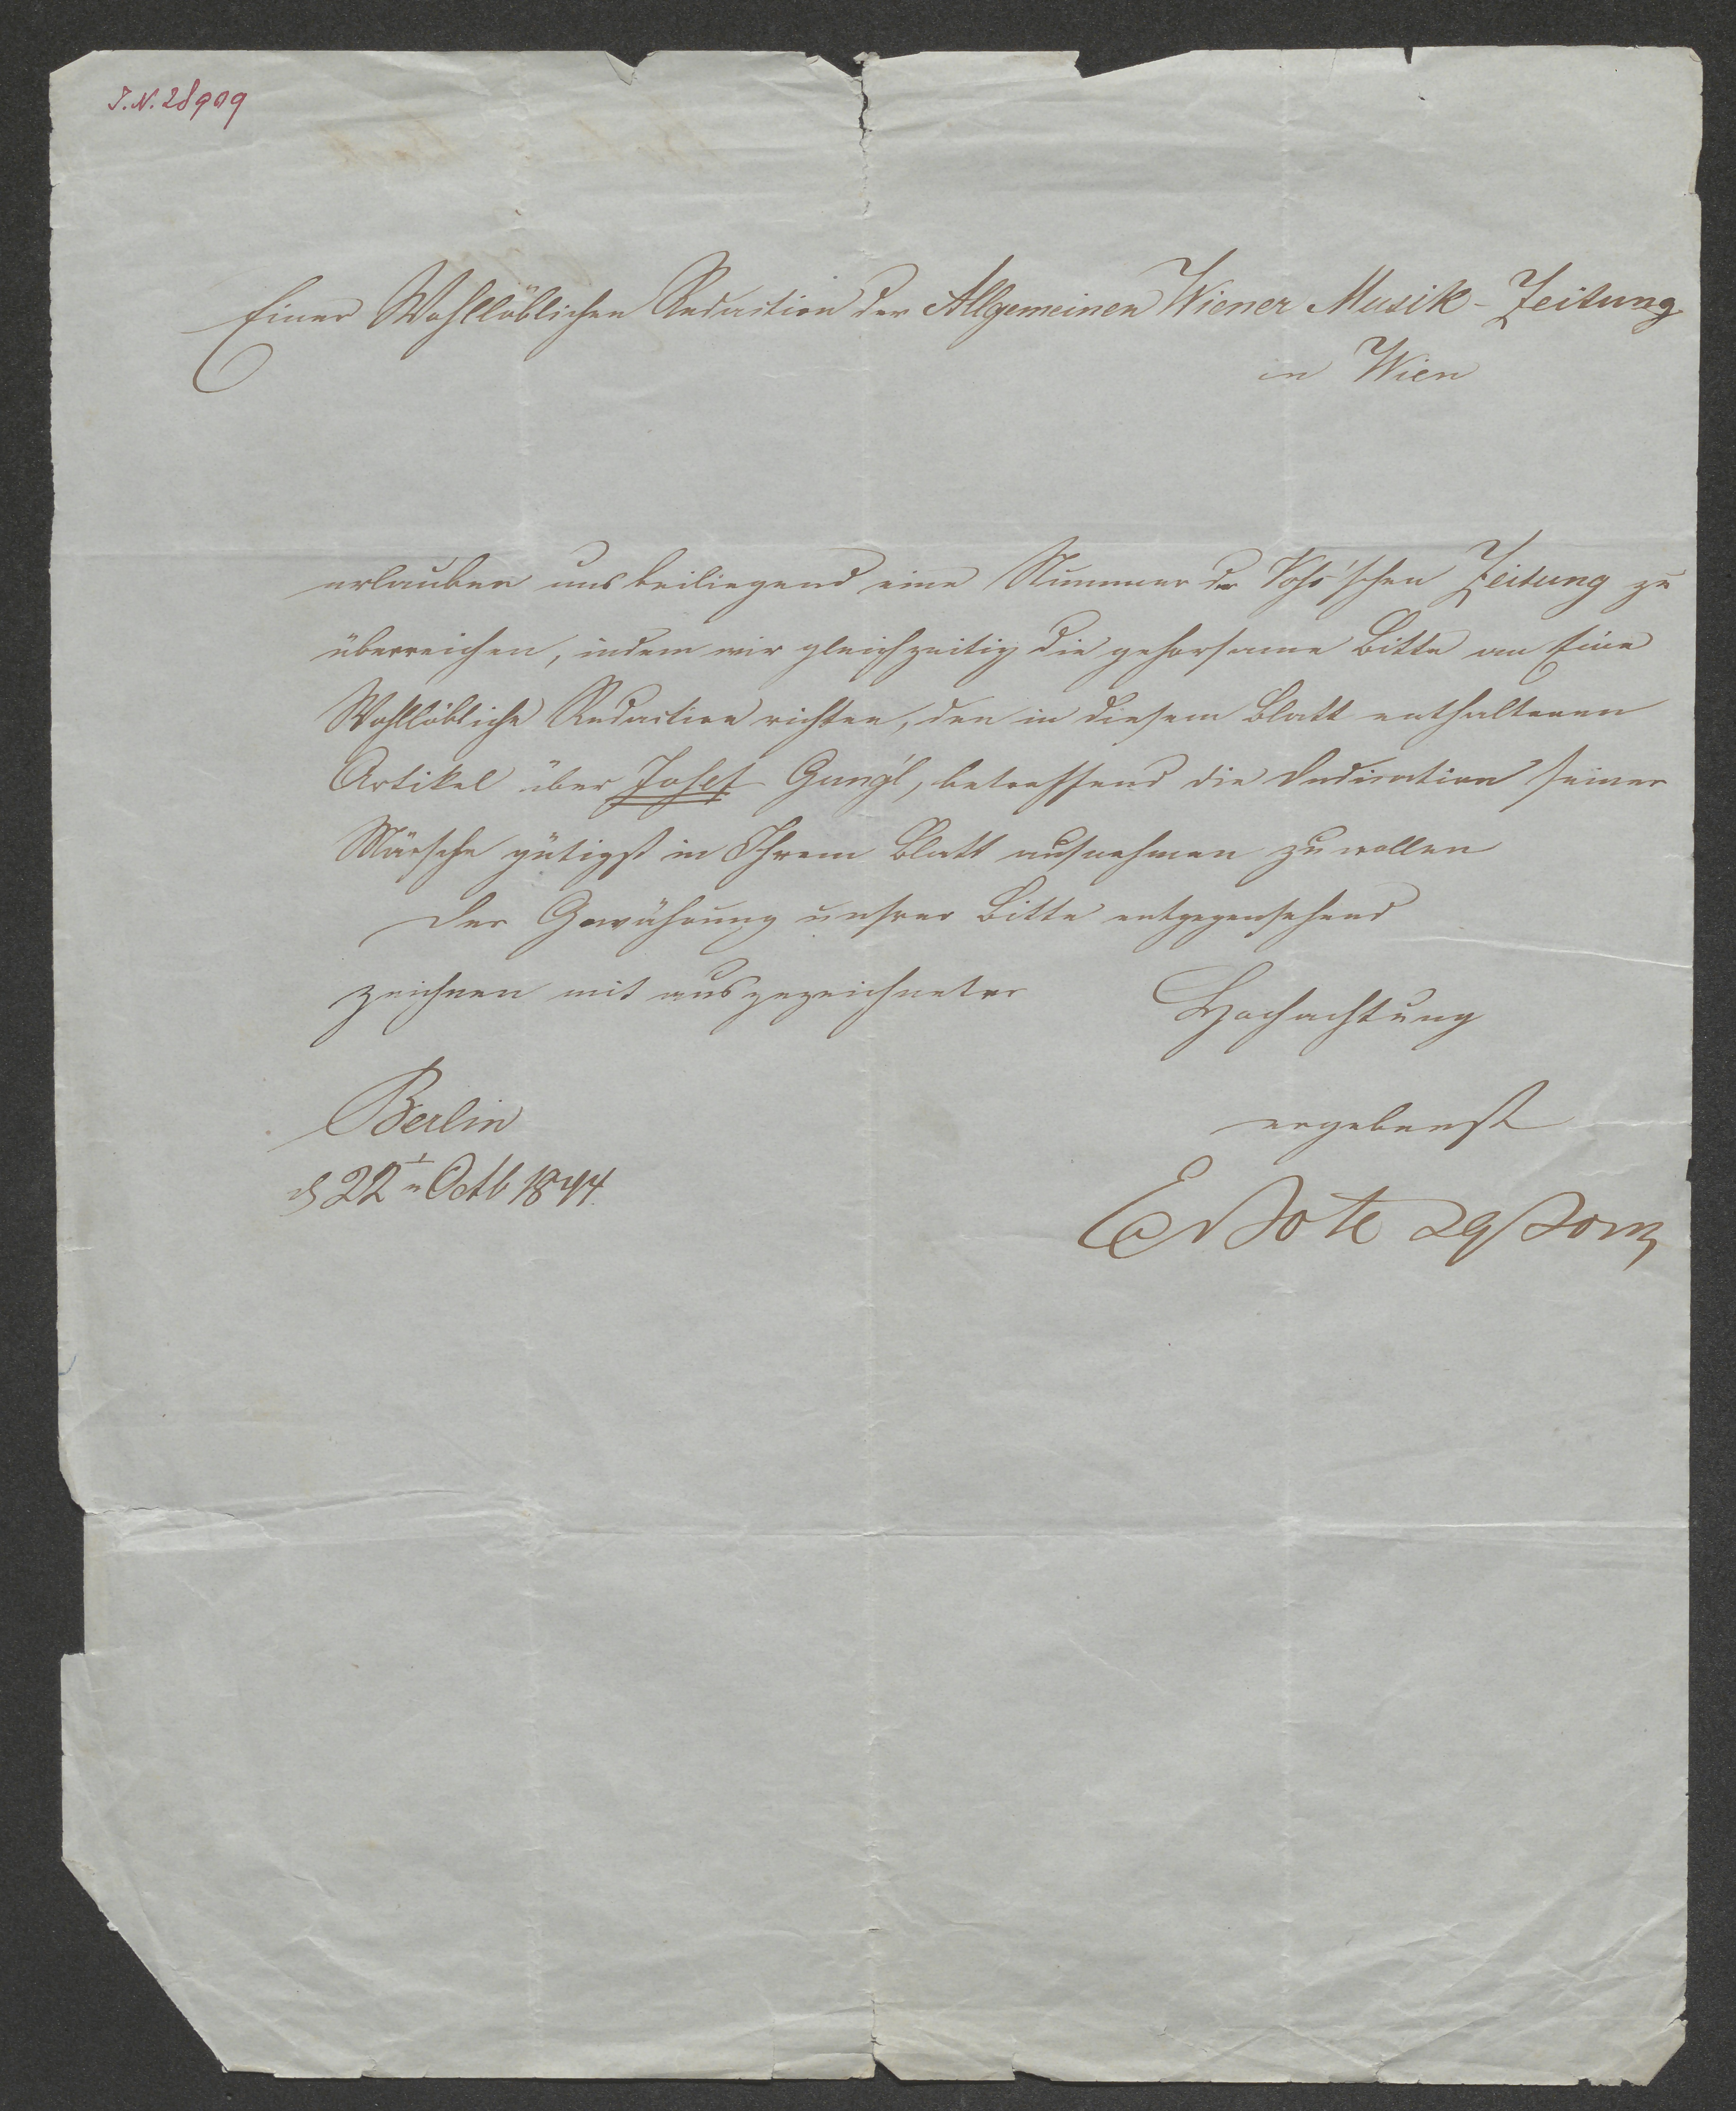 I.N. 28909
Einer Wohllöblichen Redaction der Allgemeinen Wiener Musik-Zeitung
in Wien
erlauben uns beiliegend eine Nummer der Voß'schen Zeitung zu
überreichen, indem wir gleichzeitig die gehorsame Bitte an Eine
Wohllöbliche Redaction richten, den in diesem Blatt enthaltenen
Artikel über Josef Gung'l, betreffend die Dedication seiner
Märsche gütigst in Ihrem Blatt aufnehmen zu wollen
Der Gewährung unsrer Bitte entgegensehend
zeichnen mit ausgezeichneter Hochachtung
Berlin
d 22t Octb 1844.
ergebenst
Ed Bote & G Bock